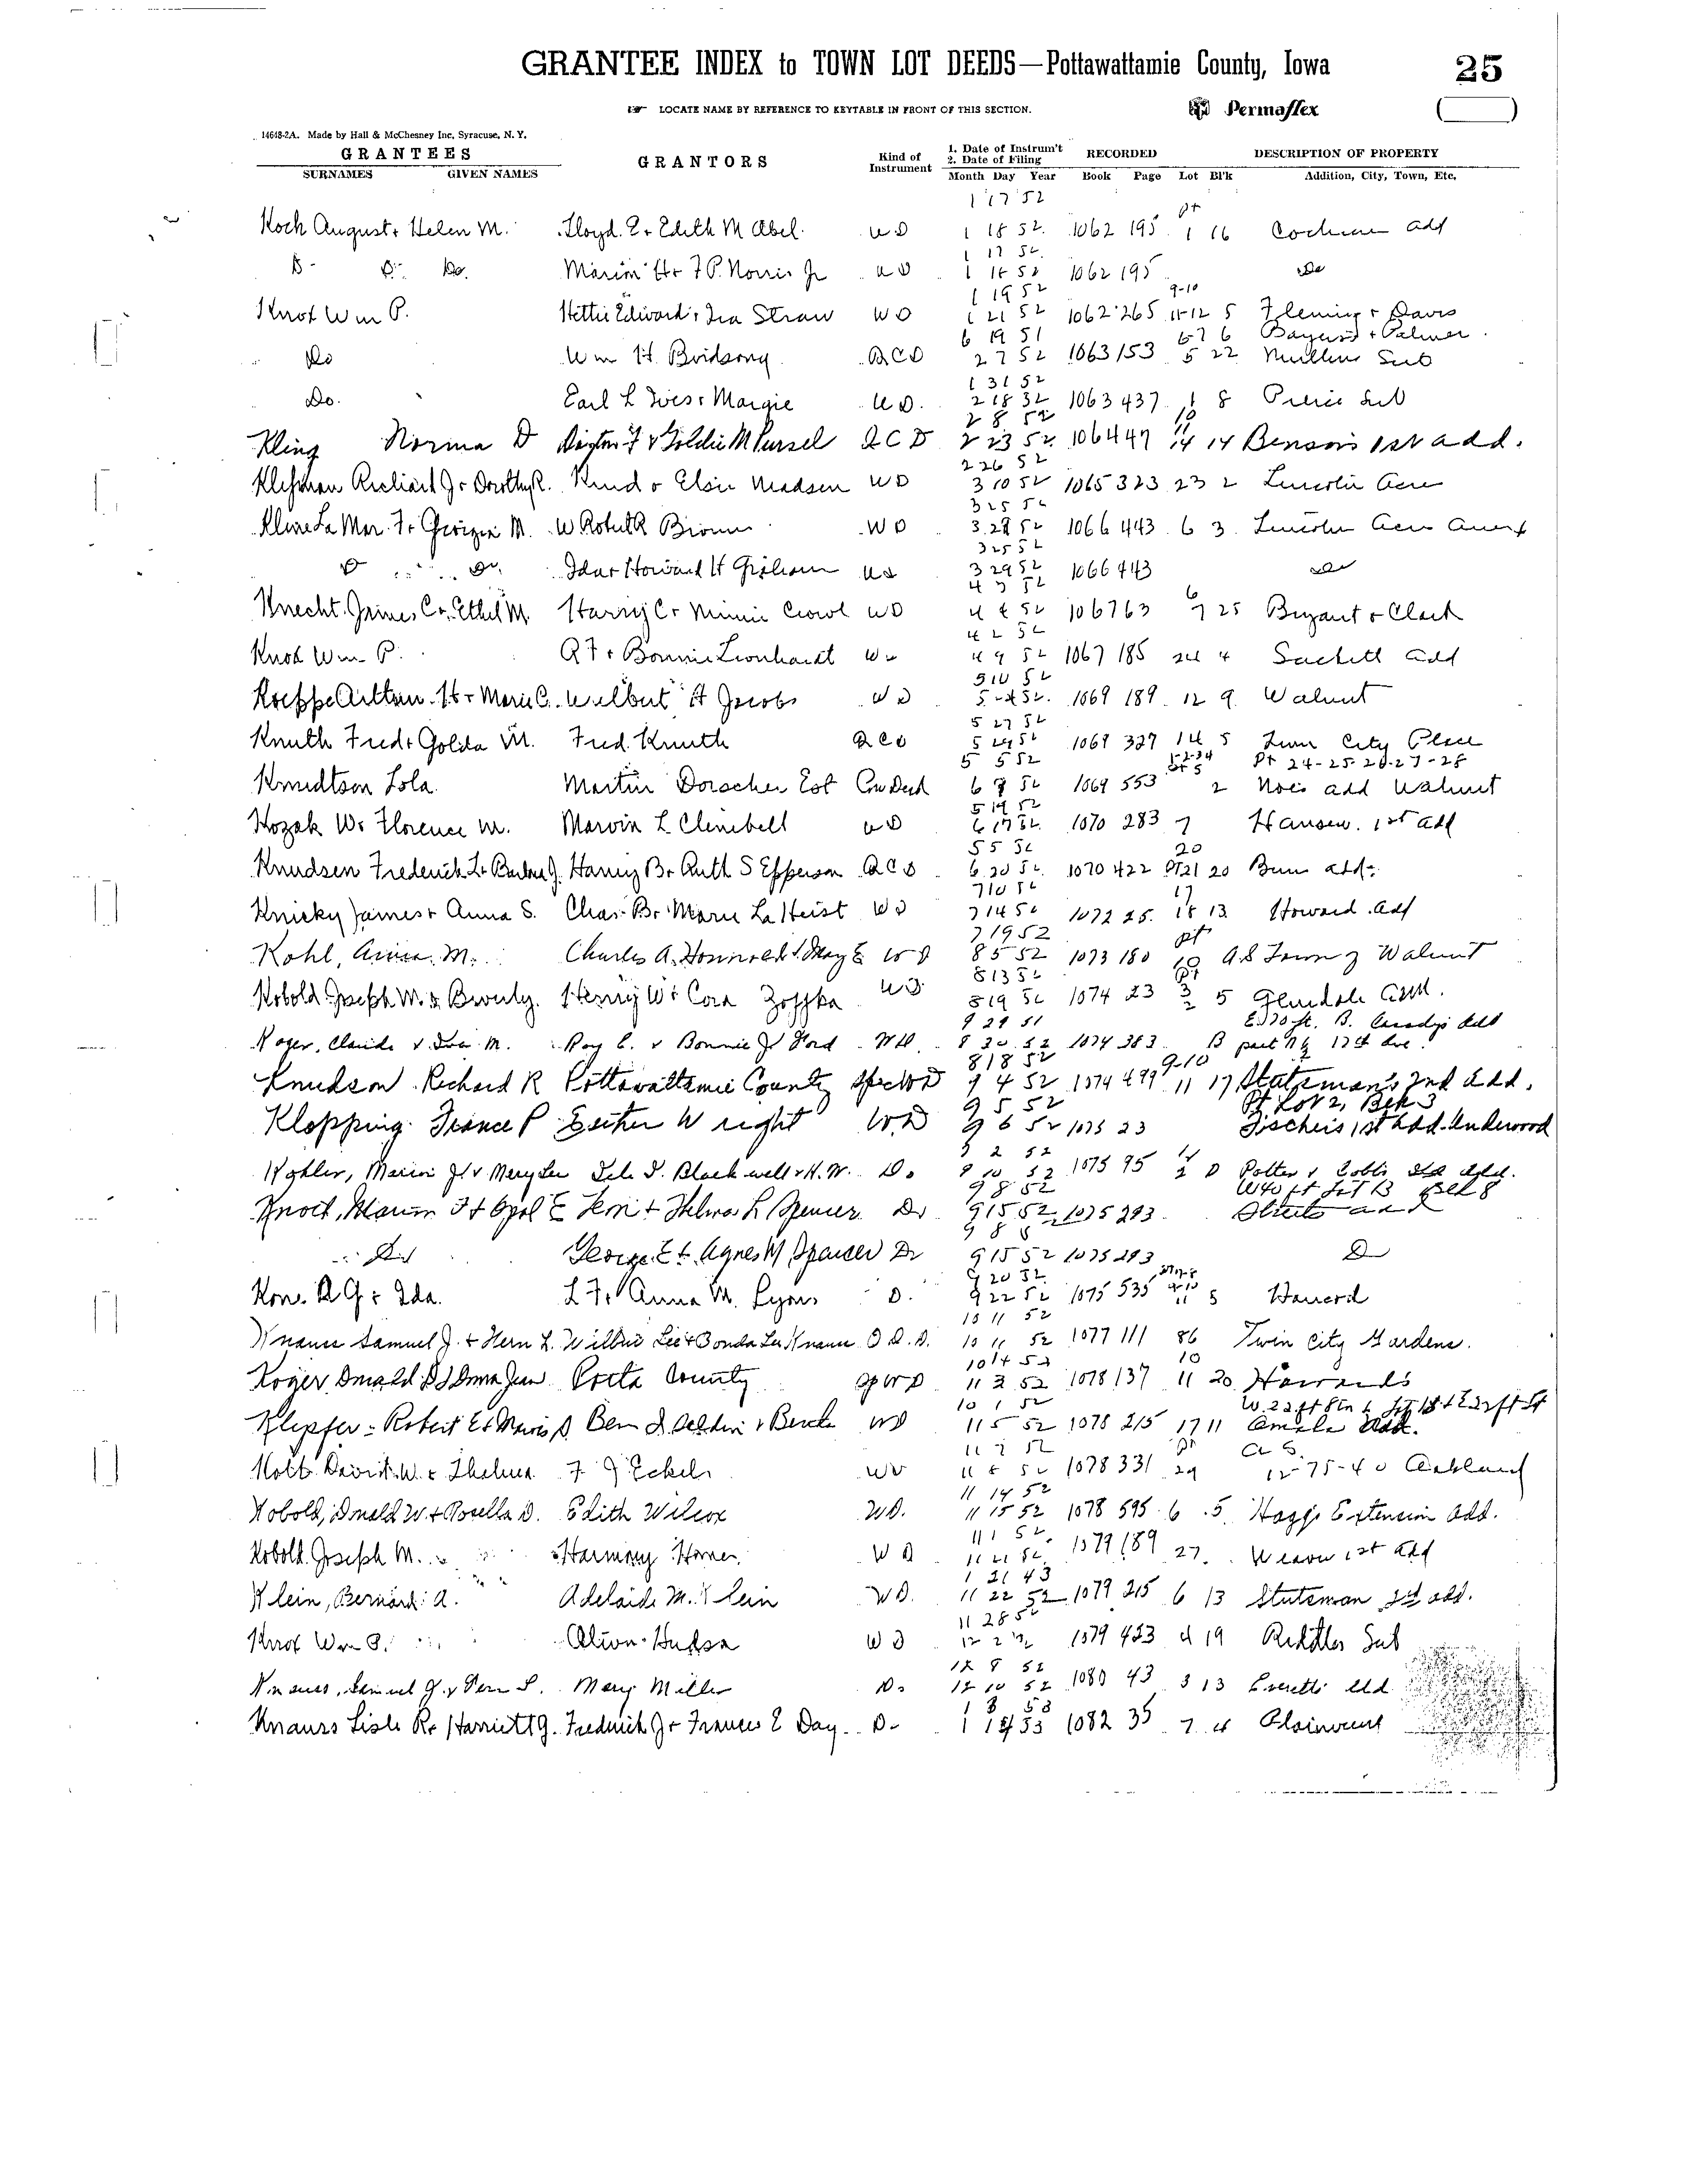 GRANTEE INDEX to TOWN LOT DEEDS—Pottawattamie County, Iowa 25
LOCATE NAME BY REFERENCE TO KEYTABLE IN FRONT OF THIS SECTION. Permaflex
14648-2A. Made by Hall & McChesney Inc, Syracuse, N. Y.
GRANTEES GRANTORS Kind of Instrument 1. Date of Instrum't 2. Date of Filing RECORDED DESCRIPTION OF PROPERTY
SURNAMES GIVEN NAMES Month Day Year Book Page Lot Bl'k Addition, City, Town, Etc.
1 17 52
Koch August + Helen M. Lloyd E + Edith M Abel WD 1 18 52 1062 195 pt 1 16 Cochran add
1 17 52
Do Do Marion H + F P. Norris Jr WD 1 18 52 1062 195 Do
1 19 52 9-10
Knox Wm P. Hettie Edward + Ira Straw WD 1 21 52 1062 265 11-12 5 Fleming + Davis
6 19 51 6 7 6 Bayliss + Palmer
Do Wm H. Bridsong QCD 2 7 52 1063 153 5 22 Mullins Sub
1 31 52
Do. Earl L Ives + Margie WD. 2 18 52 1063 437 1 8 Pierce Sub
2 8 52 10 11
Kling Norma D F + Goldie M Pursel QCD 2 23 52 1064 47 14 14 Benson's 1st add.
2 26 52
Richard J + Dorothy R. Knud + Elsie Madsen WD 3 10 52 1065 323 23 2 Lincoln Acre
3 25 52
Kline La Mar F + Georgia M. W Robert R Brown WD 3 29 52 1066 443 6 3 Lincoln Acre Annex
3 25 52
Do Do Ida + Howard H Graham WD 3 29 52 1066 443 Do
4 3 52 6
Knecht James C + Ethel M. Harry C + Minnie Crowl WD 4 4 52 1067 63 7 25 Bryant + Clark
4 2 52
Knox Wm P. A F + Bonnie Leonhardt WD 4 9 52 1067 185 24 4 Sackett add
5 10 52
Koeppe H + Marie C. Wilbert H Jacobs WD 52 1069 189 12 9 Walnut
5 27 52
Knuth Fred + Golda M. Fred Knuth QCD 5 29 52 1069 327 14 5 Twin City Place
5 5 52 1-2-3-4 pt 5 Pt 24-25-26-27-28
Knudtson Lola Martin Dorscher Est Con Deed 6 9 52 1069 553 2 Noes add Walnut
5 19 52
Kozak W + Florence M. Marvin L Clinebell WD 6 17 52 1070 283 7 Hansen 1st add
5 5 52 20
Knudsen Frederick L + Barbara J. Harry B + Ruth S Epperson QCD 6 20 52 1070 422 Pt 21 20 Burn add
7 10 52 17
Knicky James + Anna S. Chas B + Marie La Heist WD 7 14 52 1072 25 18 13 Howard add
7 19 52 pt
Kohl, M. Charles A. + May E WD 8 5 52 1073 180 10 AS Town of Walnut
8 13 52 pt
Kobold Joseph M + Beverly. Henry W + Cora Zoffka WD 8 19 52 1074 23 3 2 5 Glendale add.
9 29 51 E 170 ft. B. Casady's Add
Koger, Claude + Iva M. Roy C. + Bonnie J Ford WD. 8 30 52 1074 383 B part 17th Ave.
8 18 52 9-10
Knudson Richard R Pottawattamie County Spec WD 9 4 52 1074 499 11 17 Stutsman's 2nd Add.
9 5 52 Pt Lot 2, Blk 3
Klopping France P Esther Wright W.D 9 6 52 1075 23 Fischers 1st Add. Underwood
9 2 52
Kohler, Marion J. + Mary Lee I. Blackwell + H. W. Do 9 10 52 1075 95 D Potter + Cobb's add.
9 8 52 W40 ft Lot 13 Blk 8
Knott, Marion F + Opal E + Thelma L Spencer Do 9 15 52 1075 293 Streets add
9 8
Do George E + Agnes M Spencer Do 9 15 52 1075 293 D
9 20 52
Kone R G + Ida. L F + Anna M. Lyons D. 9 22 52 1075 535 11 5 Howard
10 11 52
Knauss Samuel J. + Fern L. Wilbur Lee + Bonda Lee Knauss Q.C.D. 10 11 52 1077 111 86 Twin City Gardens.
10 14 52 10
Koger Donald D + Donna Jean Potta County SpWD 11 3 52 1078 137 11 20 Howards
10 1 52 W. 22 ft 8 in
Klepfer Robert E + Mavis D. Ben I Seldin + Berda WD 11 5 52 1078 215 17 11 Omaha Add.
11 7 52 pt AS
Kolb David W. + Thelma F J Eckel WD 11 8 52 1078 331 29 12-75-40 Oakland
11 14 52
Kobold, Donald W. + Rosella D. Edith Wilcox WD. 11 15 52 1078 595 6 5 Haggs Extension Add.
11 1 52
Kobold Joseph M. Harmony Horner WD 11 21 52 1079 189 27 Weaver 1st Add
1 21 43
Klein, Bernard A. Adelaide M. Klein WD. 11 22 52 1079 215 6 13 Stutsman 2d add.
11 28 52
Knox Wm P. Alison Hudson WD 12 2 52 1079 423 4 19 Riddles Sub
12 8 52
Knauss, Samuel J. + Fern L. Mary Miller D. 12 10 52 1080 43 3 13 Everetts Add
1 3 53
Knauss Lisle R + Harriett G. Frederick J + Frances E Day D- 1 53 1082 35 7 4 Plainview